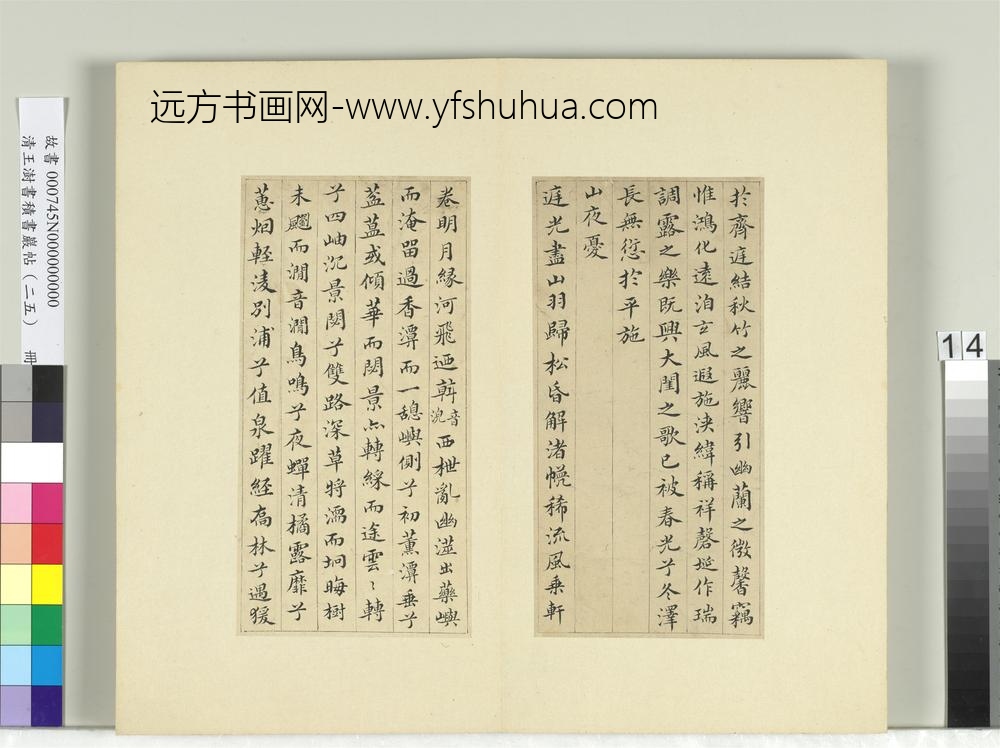 远方书画网-www.yfshuhua.com
於齊遅結秋竹之麗響引幽蘭之微馨竊
惟鴻化遠洎玄風遐施浹緯稱祥磬埏作瑞
調露之樂既興大閨之歌已被春光兮冬澤
長無愆於平施
山夜憂
庭光盡山羽歸松昏解渚幌稀流風乗軒
卷明月緣河飛迊斡音沇西枻亂幽澨出藥嶼
而淹留過香潭而一憩嶼側兮初薰潭垂兮
葢葢或傾華而閟景亦轉綵而途雲〻轉
兮四岫沉景閟兮雙路深草將濡而坰晦樹
未飀而澗音澗鳥鳴兮夜蟬清橘露靡兮
蕙烟輕淩別浦兮值泉躍經喬林兮遇猨
故書 000745N000000000
清王澍書積書巖帖（二五） 冊
14